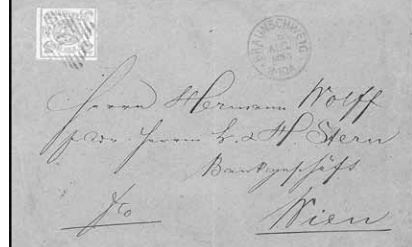 BRAUNSCHWEIG
Herrn Hermann Wolff
Herrn & H. Stern
Bankgeschäft
Wien